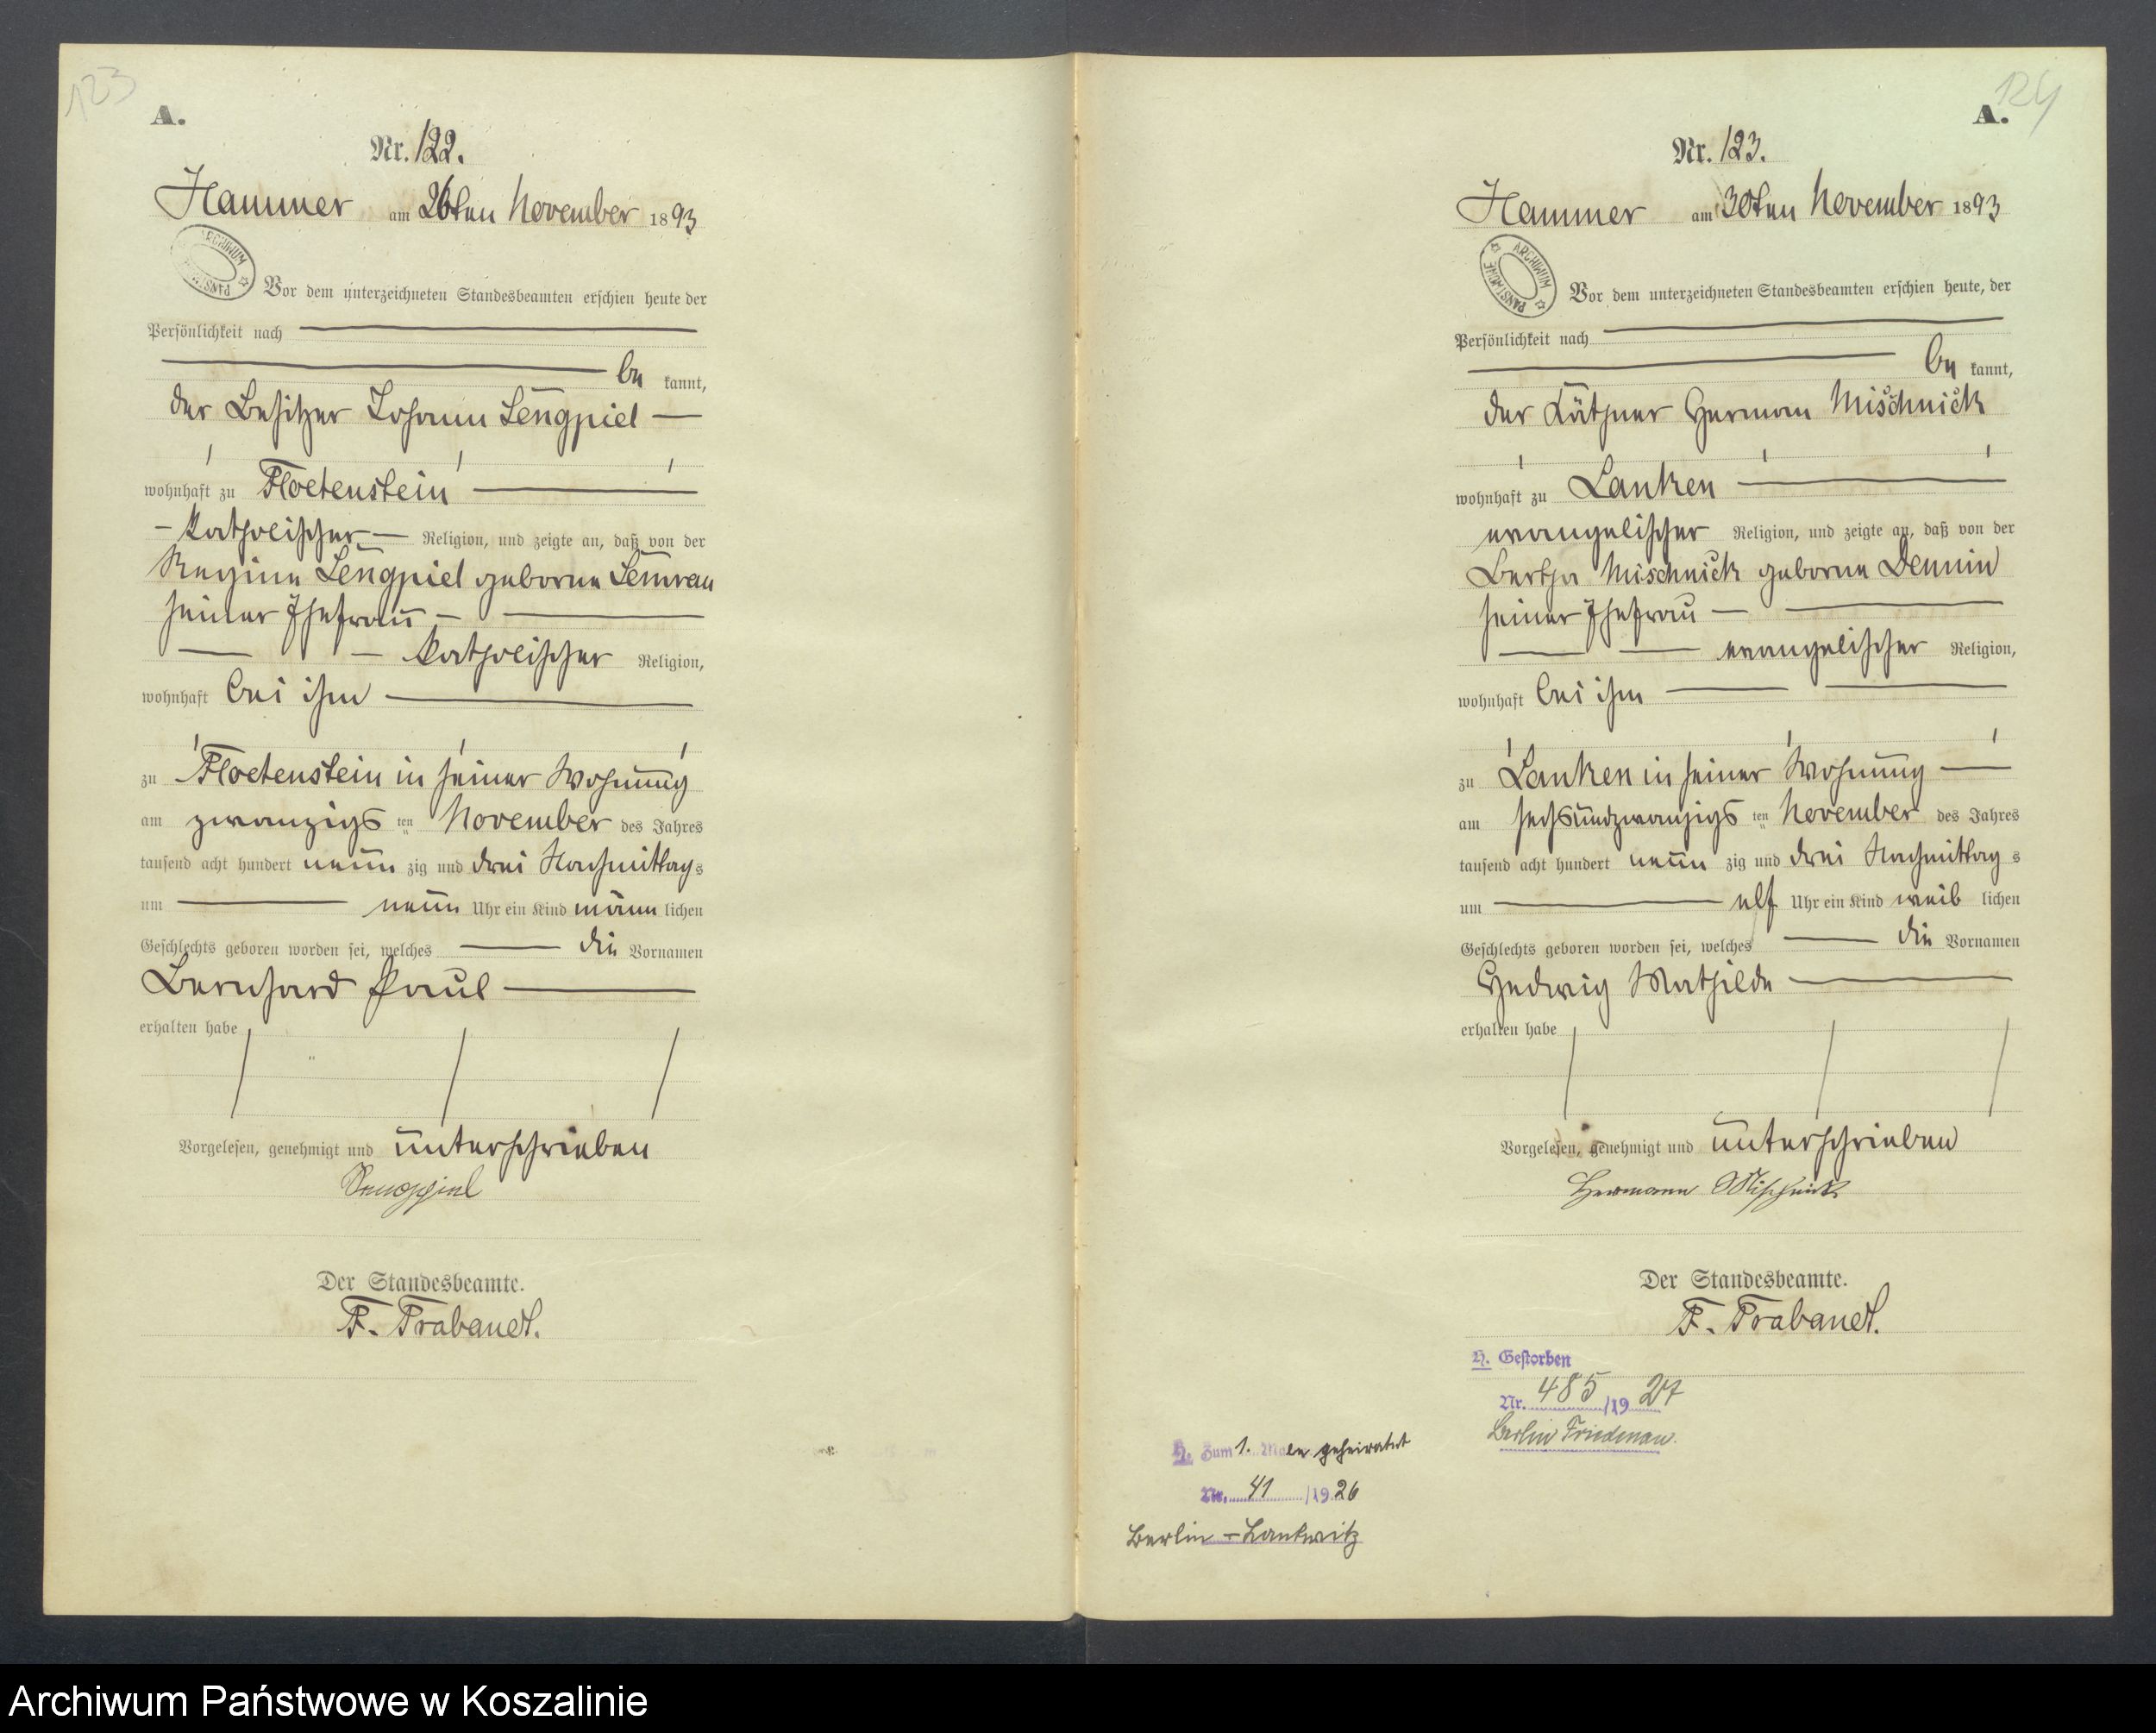 123
A.
Nr. 122.
Hammer am 26ten November 1893
ARCHIWUM
Vor dem unterzeichneten Standesbeamten erschien heute der
Persönlichkeit nach
be kannt,
der Besitzer Johann Lengpiel
wohnhaft zu Floetenstein
katholischer Religion, und zeigte an, daß von der
Regine Lengpiel geborne Semrau
seiner Ehefrau
katholischer Religion,
wohnhaft bei ihm
zu Floetenstein in seiner Wohnung
am zwanzigs ten November des Jahres
tausend acht hundert neun zig und drei Nachmittag s
um neun Uhr ein Kind männ lichen
Geschlechts geboren worden sei, welches die Vornamen
Bernhard Paul
erhalten habe
Vorgelesen, genehmigt und unterschrieben
Der Standesbeamte.
F. Trabandt.
124
A.
Nr. 123.
Hammer am 30ten November 1893
ARCHIWUM PAŃSTWOWE
Vor dem unterzeichneten Standesbeamten erschien heute, der
Persönlichkeit nach
be kannt,
der Käthner Herman Mischnick
wohnhaft zu Lanken
evangelischer Religion, und zeigte an, daß von der
Bertha Mischnick geborne Demin
seiner Ehefrau
evangelischer Religion,
wohnhaft bei ihm
zu Lanken in seiner Wohnung
am sechsundzwanzigs ten November des Jahres
tausend acht hundert neun zig und drei Nachmittag s
um elf Uhr ein Kind weib lichen
Geschlechts geboren worden sei, welches die Vornamen
Hedwig Mathilde
erhalten habe
Vorgelesen, genehmigt und unterschrieben
Hermann Mischnick
Der Standesbeamte.
F. Trabandt.
H. Gestorben
Nr. 485/1927
Berlin Friedenau.
H. Zum 1. Male geheiratet
Nr. 41/1926
Berlin-Lankwitz
Archiwum Państwowe w Koszalinie